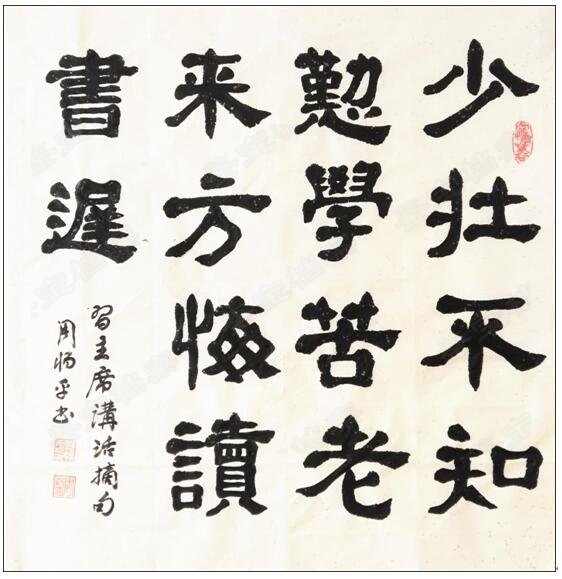 少壯不知
懃學苦老
来方悔讀
書遲
習主席講话摘句
周炀平书